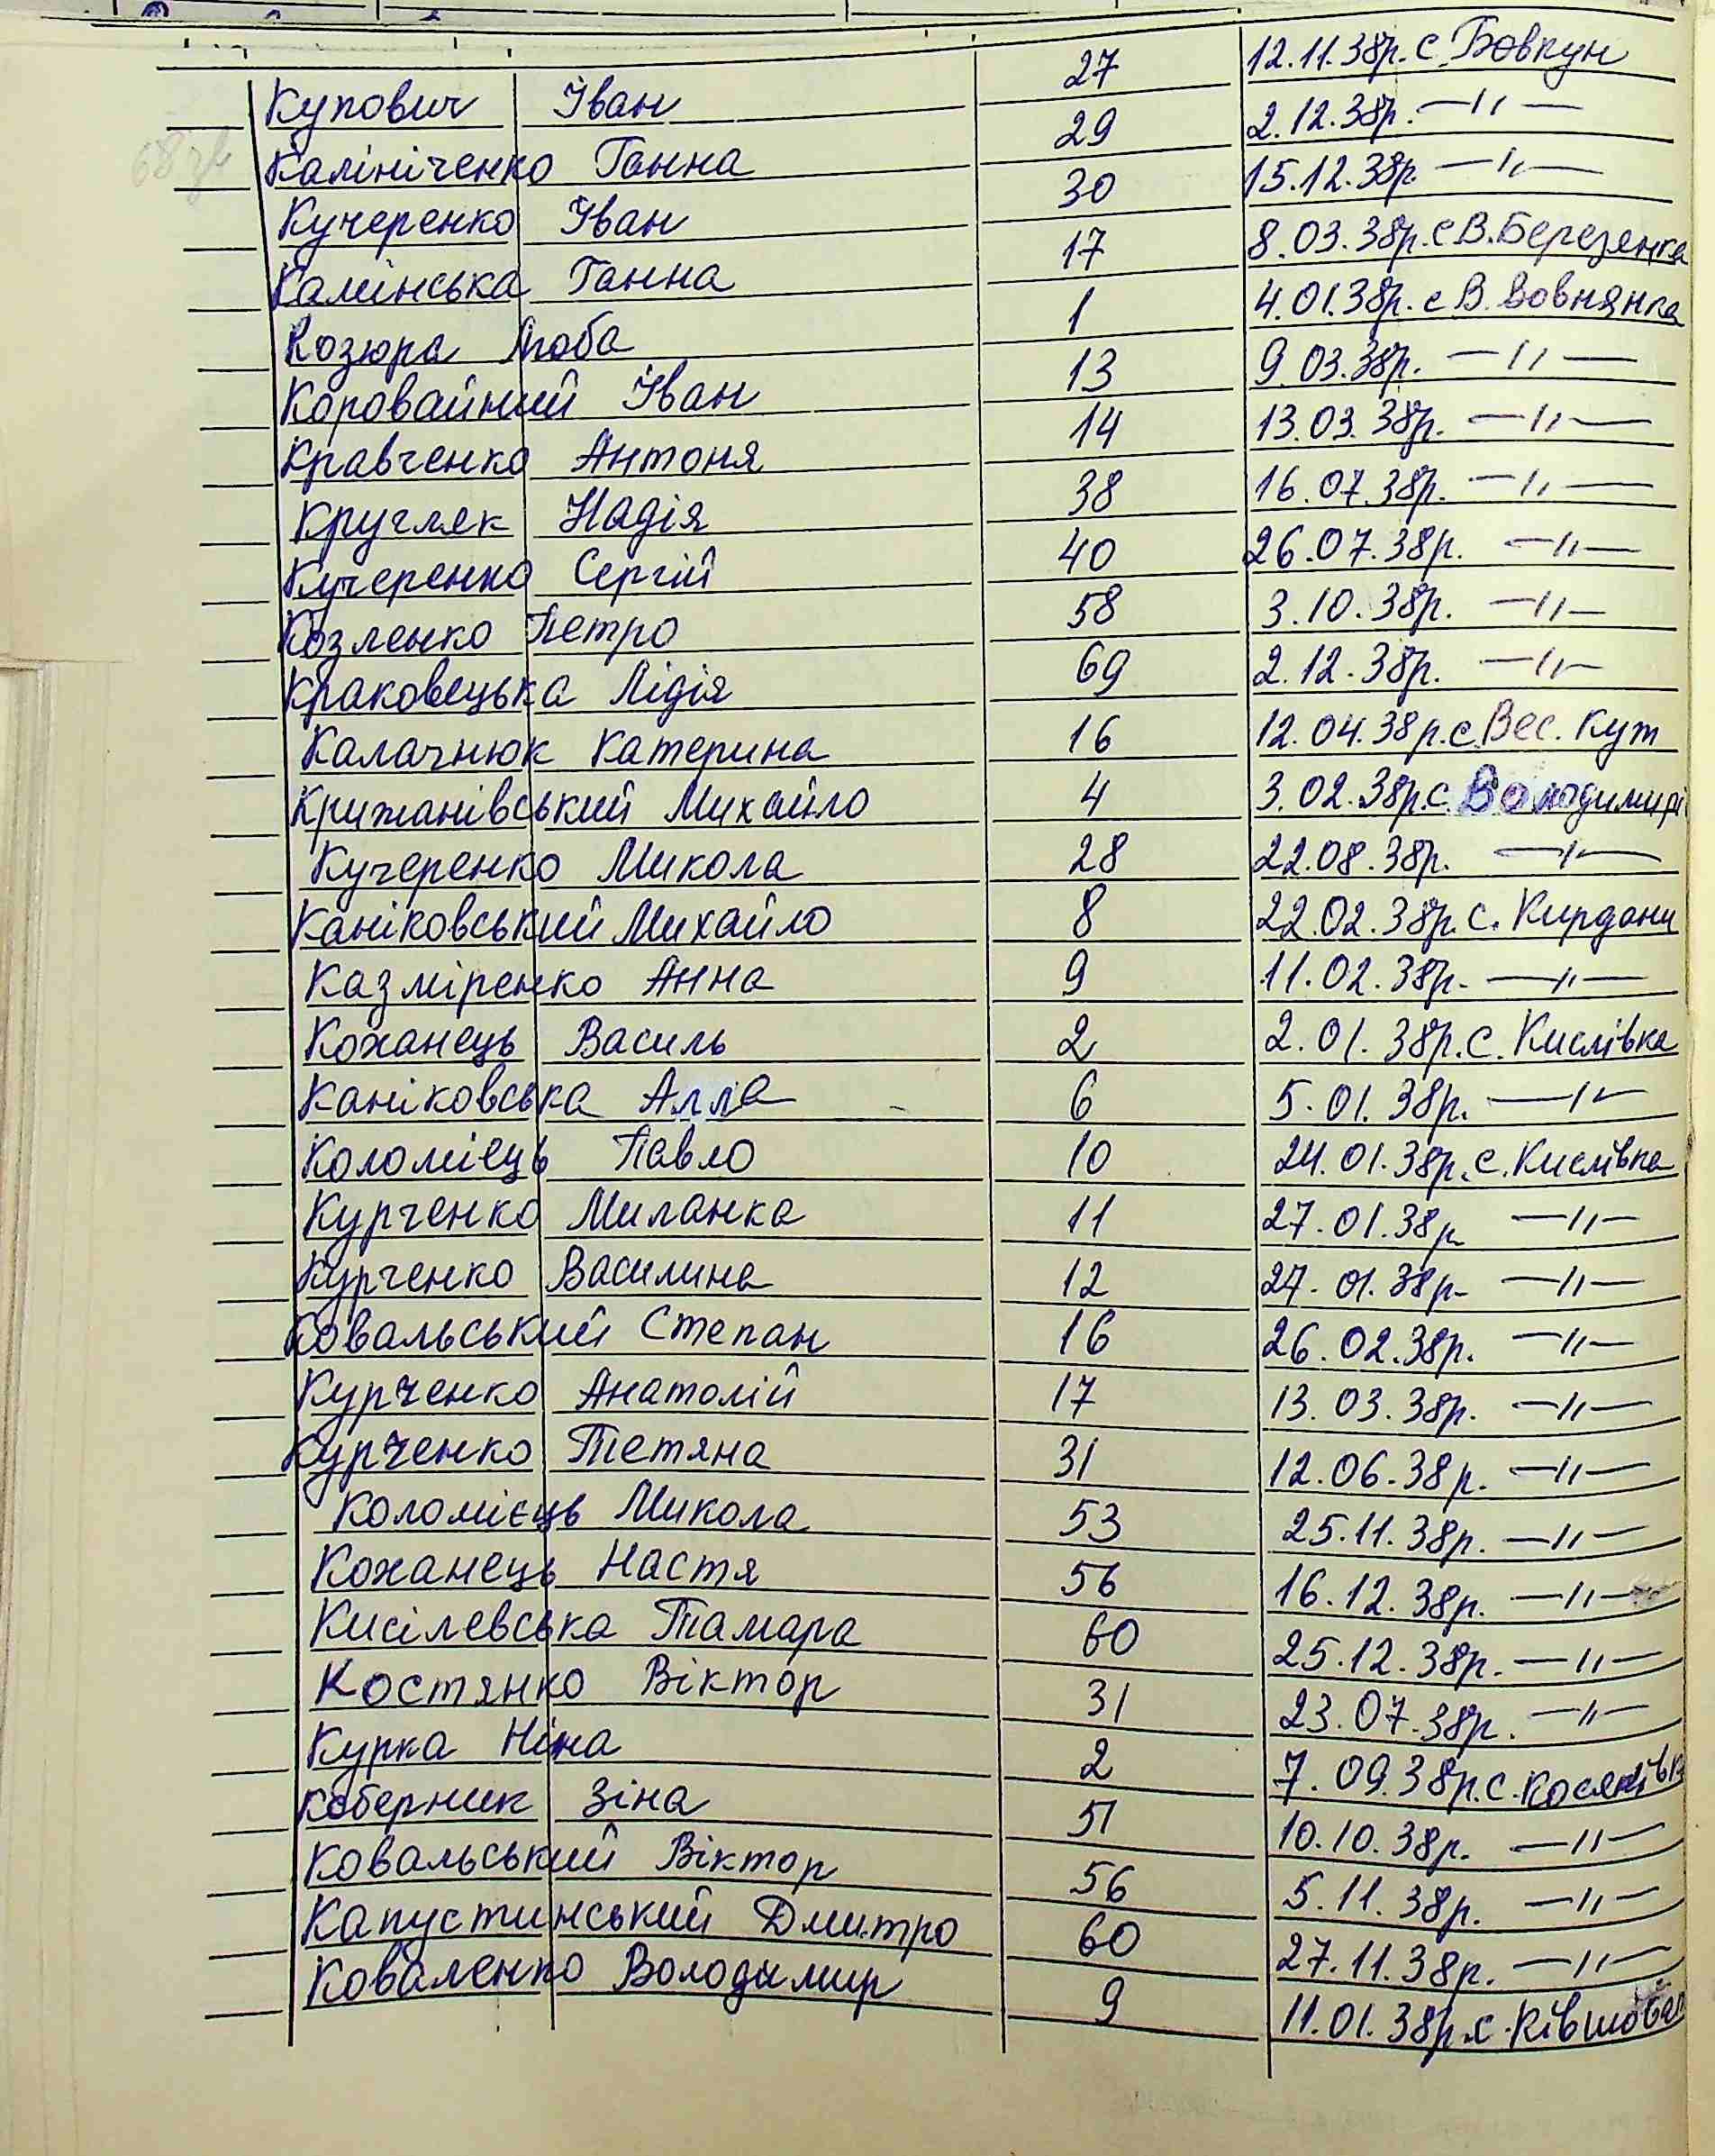 Купович Іван 27 12.11.38р. с. Бовкун
Калініченко Ганна 29 2.12.38р. —〃—
Кучеренко Іван 30 15.12.38р. —〃—
Камінська Ганна 17 8.03.38р. с В. Березянка
Козюра Люба 1 4.01.38р. с В. Вовнянка
Коровайний Іван 13 9.03.38р. —〃—
Кравченко Антоня 14 13.03.38р. —〃—
Кругляк Надія 38 16.07.38р. —〃—
Кучеренко Сергій 40 26.07.38р. —〃—
Козленко Петро 58 3.10.38р. —〃—
Краковецька Лідія 69 2.12.38р. —〃—
Калачнюк Катерина 16 12.04.38р. с. Вес. Кут
Крижанівський Михайло 4 3.02.38р. с. Володимирі
Кучеренко Микола 28 22.08.38р. —〃—
Каніковський Михайло 8 22.02.38р. с. Кирдани
Казміренко Анна 9 11.02.38р. —〃—
Коханець Василь 2 2.01.38р. с. Кислівка
Каніковська Алла 6 5.01.38р. —〃—
Коломієць Павло 10 24.01.38р. с. Кислівка
Курченко Миланка 11 27.01.38р —〃—
Курченко Василина 12 27.01.38р —〃—
Ковальський Степан 16 26.02.38р. —〃—
Курченко Анатолій 17 13.03.38р. —〃—
Курченко Тетяна 31 12.06.38р. —〃—
Коломієць Микола 53 25.11.38р. —〃—
Коханець Настя 56 16.12.38р. —〃—
Кисілевська Тамара 60 25.12.38р. —〃—
Костянко Віктор 31 23.07.38р. —〃—
Курка Ніна 2 7.09.38р. с. Косянівк
Коберник Зіна 51 10.10.38р. —〃—
Ковальський Віктор 56 5.11.38р. —〃—
Капустинський Дмитро 60 27.11.38р. —〃—
Коваленко Володимир 9 11.01.38р. с. Ківшоват